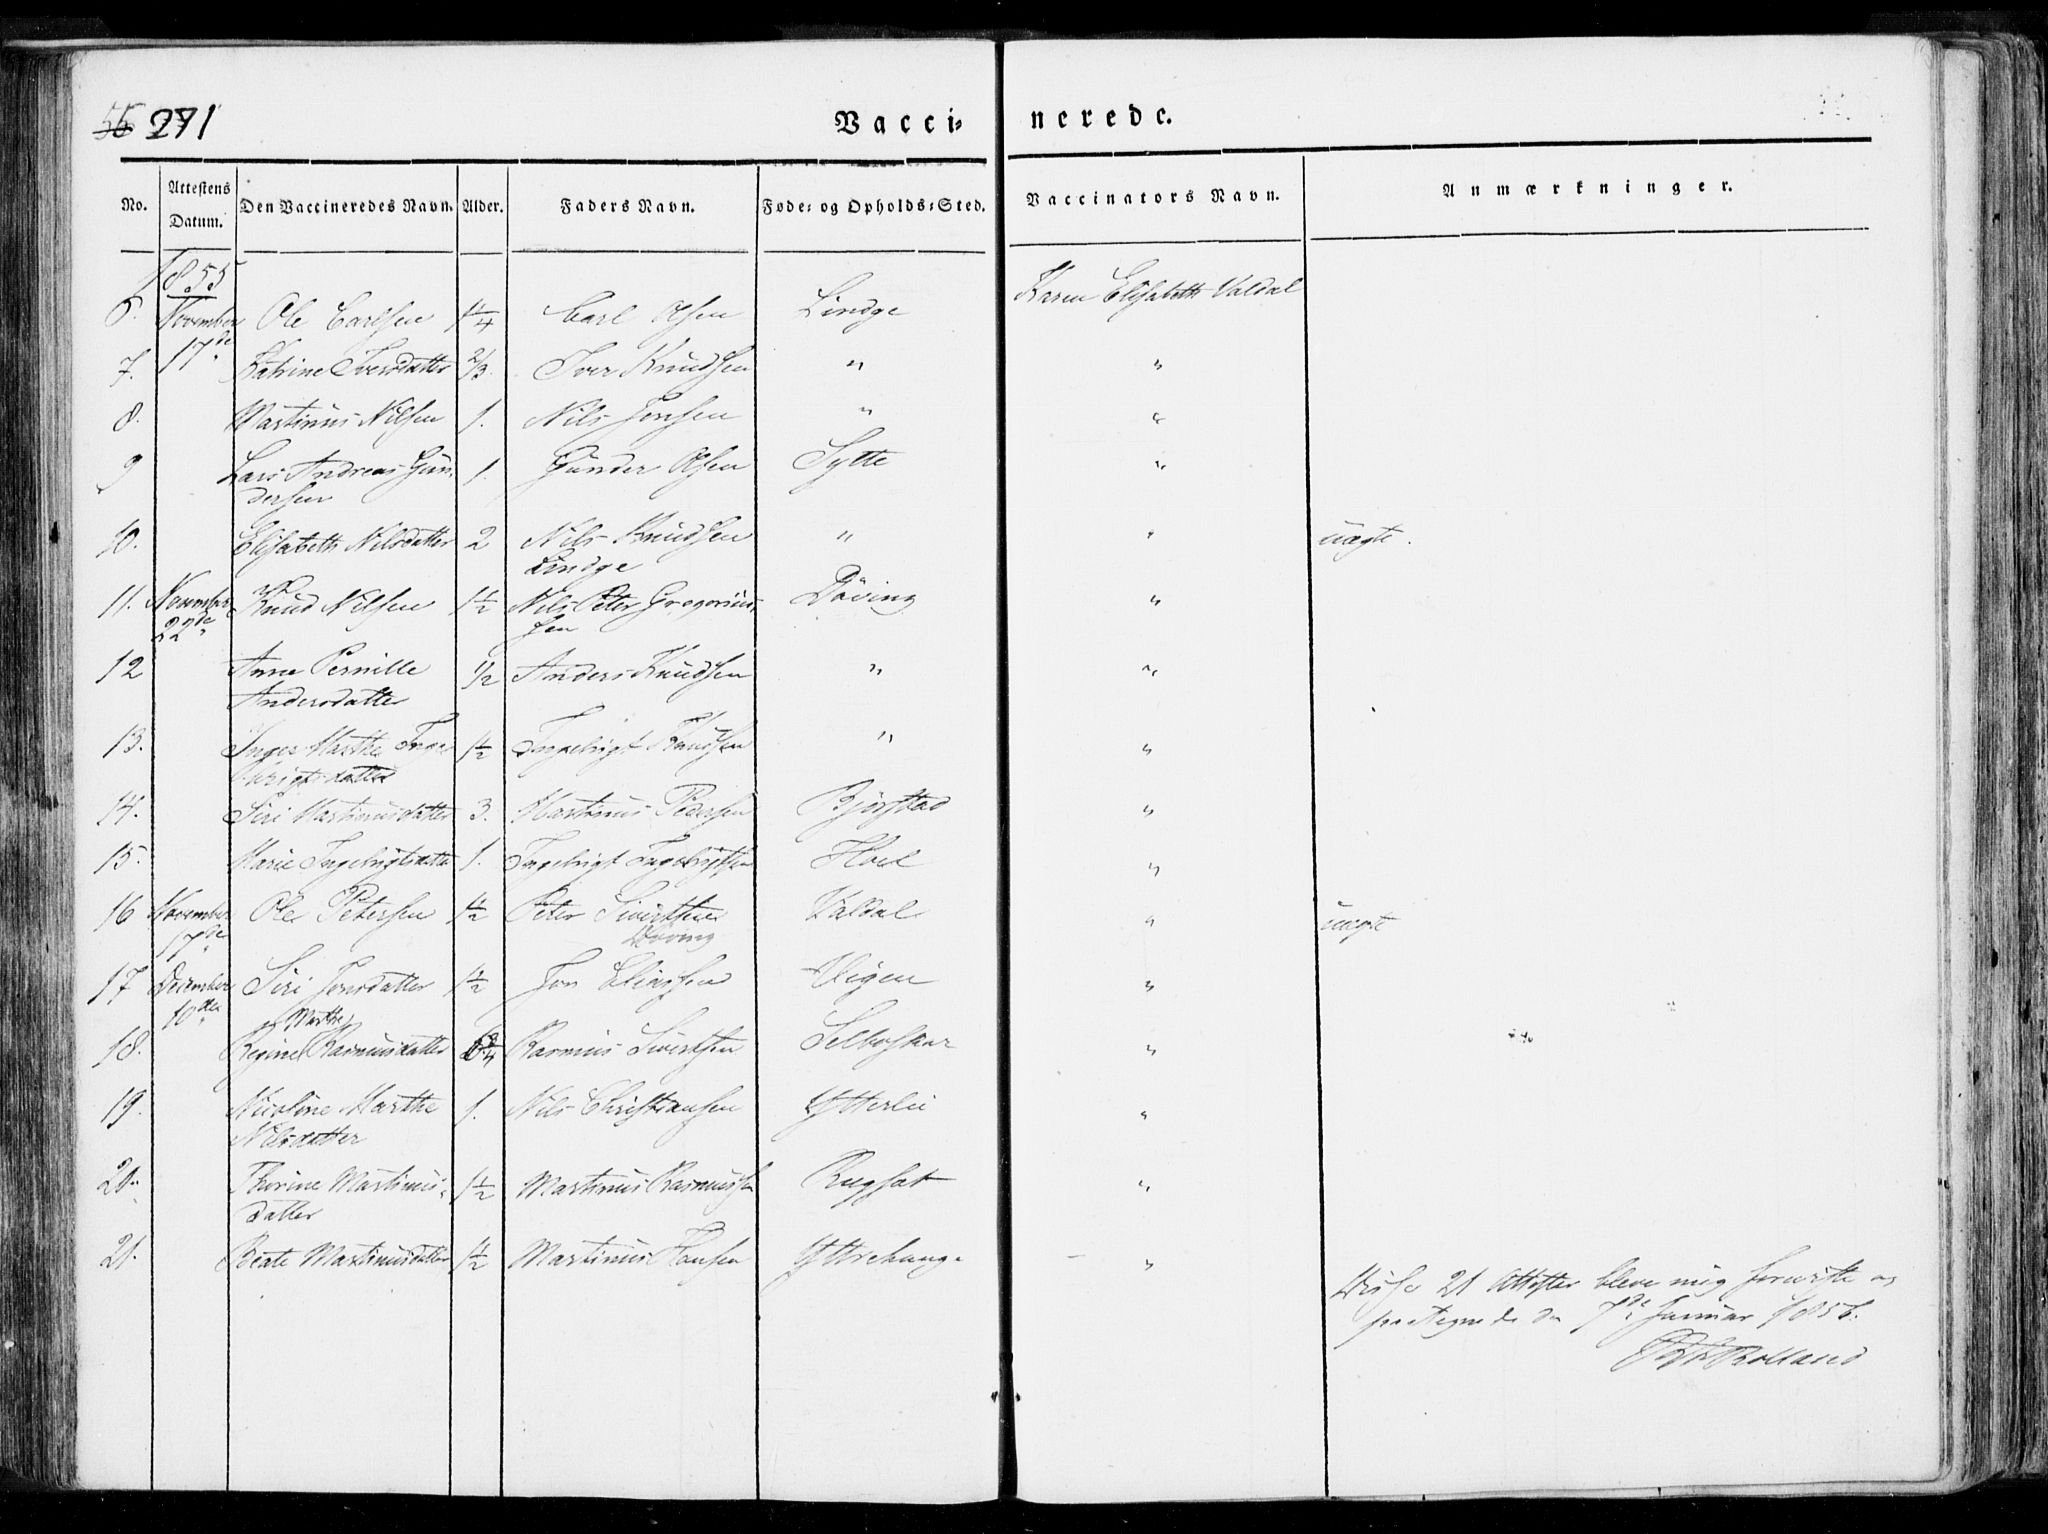 271
Vacci- nerede.
No. Attestens Datum. Den Vaccineredes Navn. Alder. Faders Navn. Føde- og Opholds-Sted. Vaccinators Navn. Anmærkninger.
1855
6. November 17de Ole Carlsen 1 1/4 Carl Olsen Lindge Karen Elisabeth Valdal
7. Katrine Iversdatter 2/3 Iver Knudsen " "
8. Martinus Nilsen 1. Nils Jonsen " "
9 Lars Andreas Gun- 1. Gunder Olsen Sylte "
dersen
10. Elisabeth Nilsdatter 2 Nils Knudsen " " uægte.
Lindge
11. November 22de Knud Nilsen 1 1/2 Nils Peter Gregorius- Döving "
sen
12 Anne Pernille 1/2 Anders Knudsen " "
Andersdatter
13. Inger Marthe Inge- 1 1/2 Ingebrigt Knudsen " "
brigtsdatter
14. Siri Martinusdatter 3. Martinus Pedersen Bjørstad "
15. Marie Ingebrigtsdatter 1. Ingebrigt Ingebrigtsen Hoel "
16 November 17de Ole Petersen 1 1/2 Peter Sivertsen Valdal " uægte
Döving
17 December 10den Siri Jonsdatter 1 1/2 Jon Eliassen Uigen "
Marthe
18. Regine Rasmusdatter Rasmus Sivertsen Selboskar "
19. Nicoline Marthe 1. Nils Christiansen Ytterlie "
Nilsdatter
20. Thrine Martinus- 1 1/2 Martinus Rasmussen "
datter
21. Beate Martinusdatter 1 1/2 Martinus Hansen "
Disse 21 Attester bleve mig foreviste og
paategnede den 7de Januar 1856.
Rolland